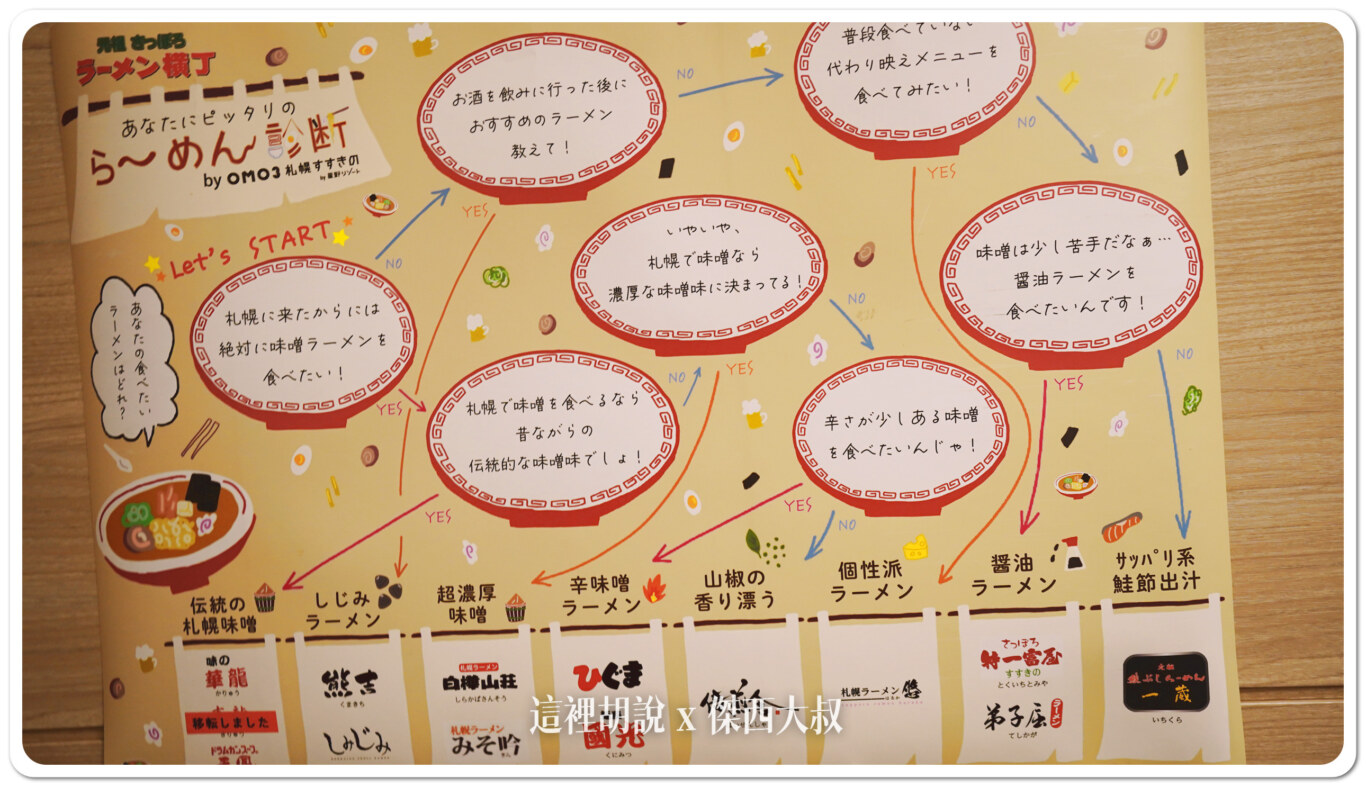 元祖 さっぽろ
ラーメン横丁
あなたにピッタリの
ら〜めん診断
by OMO3 札幌すすきの
by 星野リゾート
Let's START
あなたの食べたい
ラーメンはどれ？
札幌に来たからには
絶対に味噌ラーメンを
食べたい！
NO
YES
お酒を飲みに行った後に
おすすめのラーメン
教えて！
NO
YES
普段食べていない
代わり映えメニューを
食べてみたい！
NO
YES
いやいや、
札幌で味噌なら
濃厚な味噌味に決まってる！
NO
YES
味噌は少し苦手だなぁ…
醤油ラーメンを
食べたいんです！
NO
YES
札幌で味噌を食べるなら
昔ながらの
伝統的な味噌味でしょ！
NO
YES
辛さが少しある味噌
を食べたいんじゃ！
YES
NO
伝統の
札幌味噌
しじみ
ラーメン
超濃厚
味噌
辛味噌
ラーメン
山椒の
香り漂う
個性派
ラーメン
醤油
ラーメン
サッパリ系
鮭節出汁
味の
華龍
かりゅう
移転しました
ドラムカンスープの
熊吉
くまきち
しみじみ
札幌ラーメン
白樺山荘
しらかばさんそう
札幌ラーメン
みそ吟
ぎん
ひぐま
國光
くにみつ
札幌ラーメン 悠
さっぽろ
特一富屋
すすきの
とくいちとみや
弟子屈
ラーメン
てしかが
一蔵
いちくら
這裡胡說 x 傑西大叔